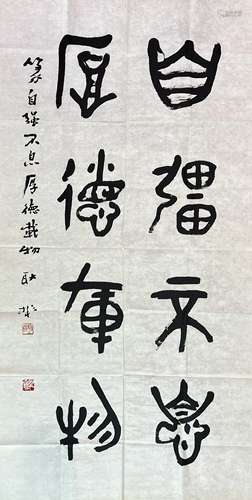 自彊不息
厚德載物
篆自強不息厚德載物 耿